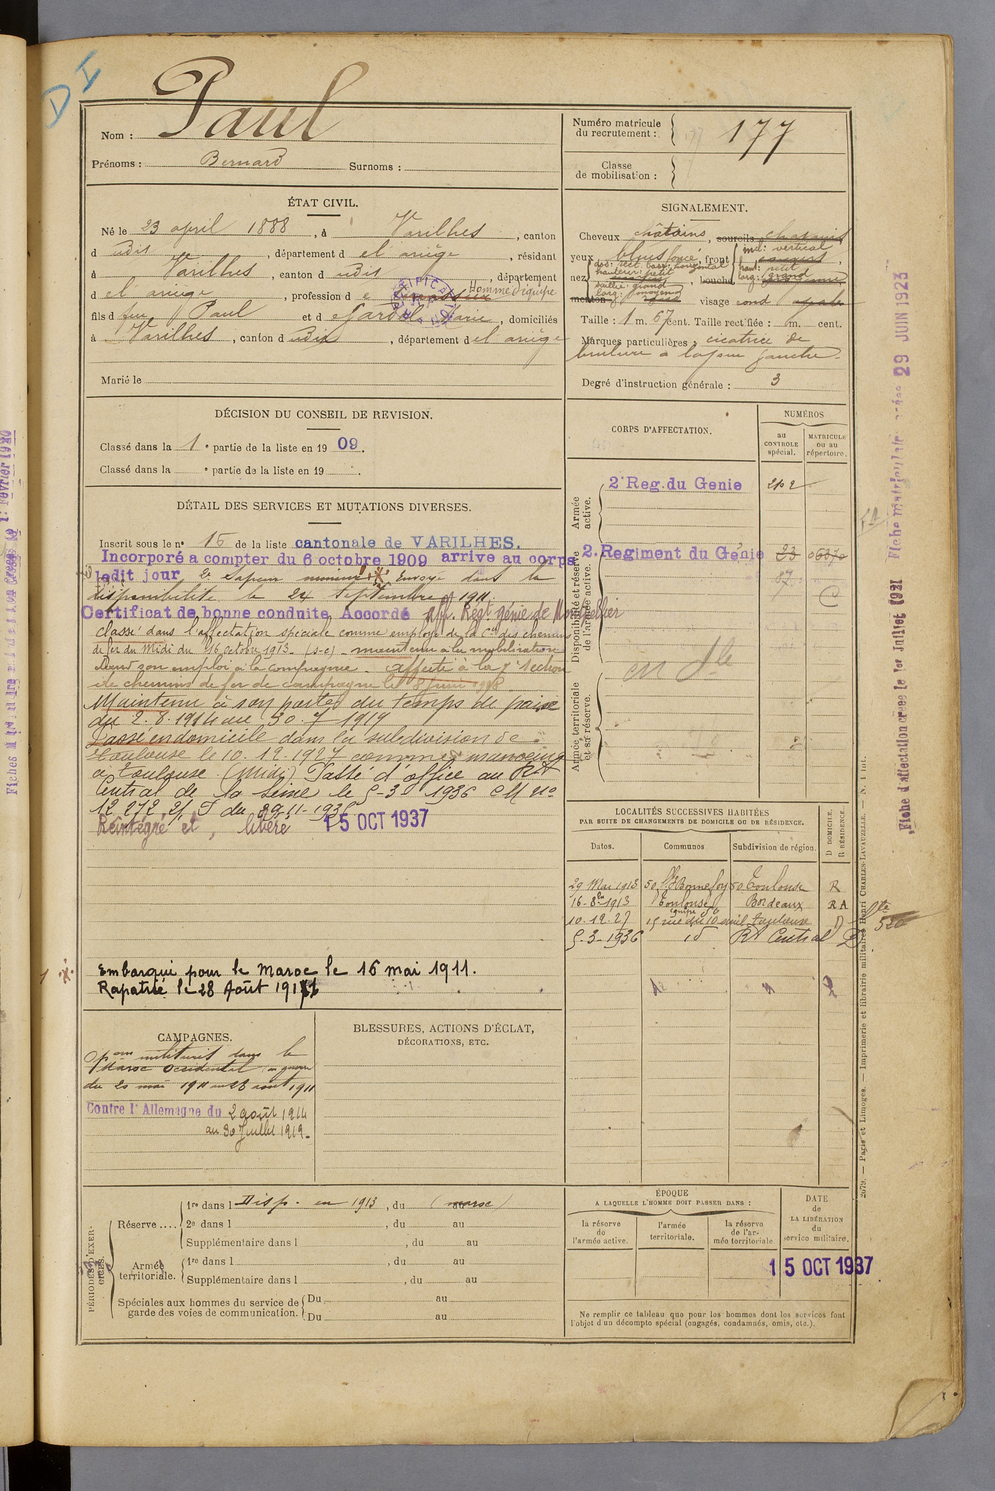 DI
Nom : Paul
Prénoms : Bernard Surnoms :
Numéro matricule
du recrutement : 177
Classe
de mobilisation :
ÉTAT CIVIL.
Né le 23 april 1888, à Varilhes, canton
d udit, département d el ariège, résidant
à Varilhes, canton d udit, département
d el ariège, profession d Homme d'équipe
fils d feu Paul et d e Marie, domiciliés
à Varilhes, canton d udit, département d el ariège
Marié le
SIGNALEMENT.
Cheveux châtains, sourcils châtains
yeux bleu foncé, front ind: vertical
haut: petit
larg: grand
nez dos: rect. base: horizontal
hauteur: petit
saillie: grand
larg: moyenne
, bouche
menton visage rond
Taille : 1 m. 67 cent. Taille rectifiée : m. cent.
Marques particulières : cicatrice de
brulure à la joue gauche.
Degré d'instruction générale : 3
DÉCISION DU CONSEIL DE REVISION.
Classé dans la 1e partie de la liste en 1909.
Classé dans la e partie de la liste en 19 .
DÉTAIL DES SERVICES ET MUTATIONS DIVERSES.
Inscrit sous le n° 16 de la liste cantonale de VARILHES.
Incorporé a compter du 6 octobre 1909 arrive au corps
ledit jour 2e Sapeur mineur Envoyé dans la
disponibilité le 24 Septembre 1911.
Certificat de bonne conduite Accordé Aff. Régt génie de Montpellier
classé dans l'affectation spéciale comme employé de la Cie des chemins
de fer du Midi du 16 octobre 1913. (s-c) - maintenu à la mobilisation
dans son emploi à la compagnie. affecté à la 7e section
de chemins de fer de campagne le 8 juin 1918
Maintenu à son poste du temps de paix
du 2.8.1914 au 30.7.1919
Passé en domicile dans la subdivision de
Toulouse le 10.12.1927 comme manoeuvre
à Toulouse (midi) Passé d'office au RA
Central de la Seine le 5-3-1936 CM no
12.272 2/1 T du 29-11-1935
Réintégré et libéré 15 OCT 1937
Embarqué pour le Maroc le 16 mai 1911.
Rapatrié le 28 Août 1911
CORPS D'AFFECTATION.
NUMÉROS
au
CONTROLE
spécial.
MATRICULE
ou au
répertoire.
Armée
active.
2e Reg. du Genie
Disponibilité et réserve
de l'armée active.
2. Regiment du Génie 23
67 C
en Dle
Armée territoriale
et sa réserve.
LOCALITÉS SUCCESSIVES HABITÉES
PAR SUITE DE CHANGEMENTS DE DOMICILE OU DE RÉSIDENCE.
Dates. Communes Subdivision de région. D DOMICILE. R RÉSIDENCE.
29 Mai 1913 50 fg Bonnefoy 50 Toulouse R
16-8bre 1913 Toulouse Bordeaux RA
10-12-27 15 rue du 10 avril Toulouse D
5-3-1936 id RA Central D
CAMPAGNES.
Opons militaires dans le
Maroc Occidental en guerre
du 20 mai 1911 au 28 août 1911
Contre l'Allemagne du 2 août 1914
au 30 Juillet 1919.
BLESSURES, ACTIONS D'ÉCLAT,
DÉCORATIONS, ETC.
PÉRIODES D'EXERCICES.
Réserve ....
1re dans l Disp. en 1913, du (maroc)
2e dans l , du au
Supplémentaire dans l , du au
Armée
territoriale.
1re dans l , du au
Supplémentaire dans l , du au
Spéciales aux hommes du service de
garde des voies de communication.
Du au
Du au
ÉPOQUE
A LAQUELLE L'HOMME DOIT PASSER DANS :
la réserve
de
l'armée active.
l'armée
territoriale.
la réserve
de l'ar-
mée territoriale
DATE
de
LA LIBÉRATION
du
service militaire.
15 OCT 1937
Ne remplir ce tableau que pour les hommes dont les services font
l'objet d'un décompte spécial (engagés, condamnés, omis, etc.).
2079. — Paris et Limoges. — Imprimerie et librairie militaires Henri CHARLES-LAVAUZELLE. — N. 1 int.
Fiche d'affectation créée le 1er Juillet 1921 Fiche Matriculaire créée 29 JUIN 1923